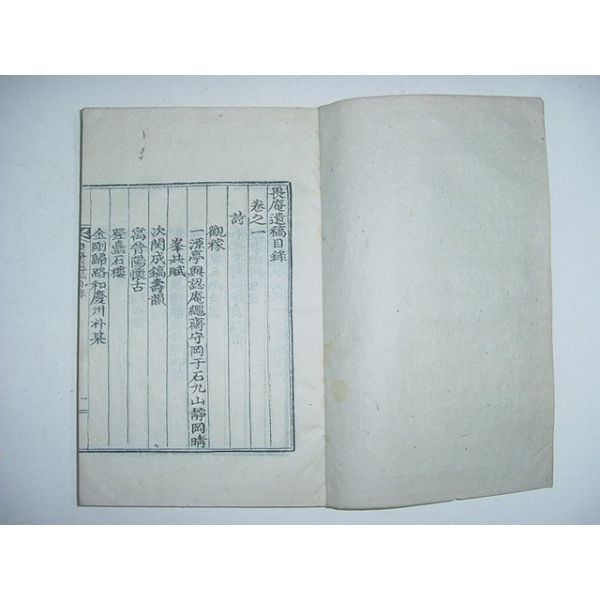 畏庵遺稿目錄
卷之一
詩
觀稼
一源亭與認庵繩齋守岡于石九山靜岡晴
峯共賦
次閔成鎬壽韻
宿晉陽懷古
矗石樓
金剛歸路和慶州朴某